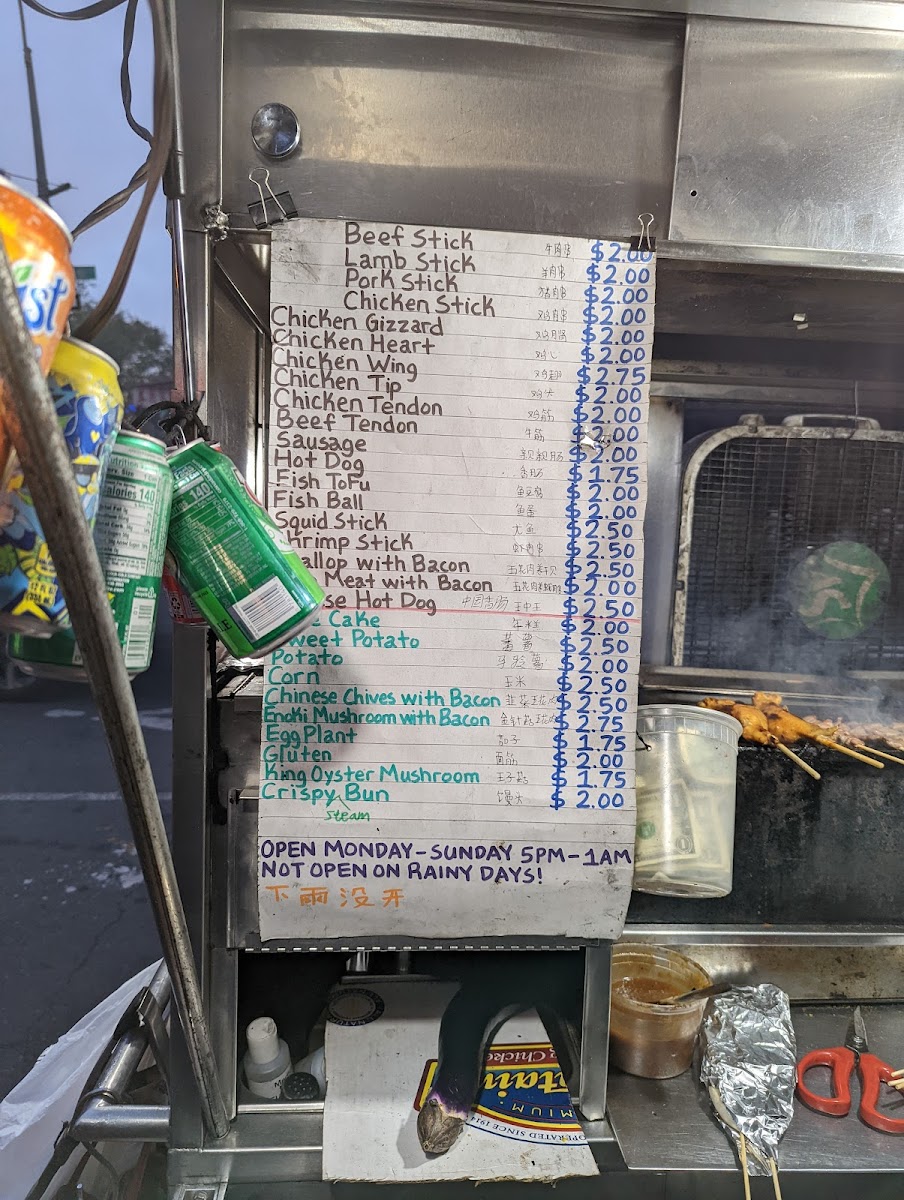 Beef Stick 牛肉串 $2.00
Lamb Stick 羊肉串 $2.00
Pork Stick 猪肉串 $2.00
Chicken Stick 鸡肉串 $2.00
Chicken Gizzard $2.00
Chicken Heart 鸡心 $2.00
Chicken Wing 鸡翅 $2.75
Chicken Tip 鸡尖 $2.00
Chicken Tendon 鸡筋 $2.00
Beef Tendon 牛筋 $2.00
Sausage $2.00
Hot Dog 香肠 $1.75
Fish Tofu 鱼豆腐 $2.00
Fish Ball 鱼蛋 $2.00
Squid Stick $2.50
Shrimp Stick $2.50
allop with Bacon $2.50
Meat with Bacon $2.00
se Hot Dog 中国香肠 王中王 $2.50
Cake 年糕 $2.00
Sweet Potato 蕃薯 $2.50
Potato $2.00
Corn 玉米 $2.50
Chinese Chives with Bacon 韭菜 $2.50
Enoki Mushroom with Bacon 金针菇 $2.75
Egg Plant 茄子 $1.75
Gluten 面筋 $2.00
King Oyster Mushroom 王子菇 $1.75
Crispy Bun 馒头 $2.00
steam
OPEN MONDAY-SUNDAY 5PM-1AM
NOT OPEN ON RAINY DAYS!
下雨没开
Nutrition
Calories 140
140
Chicke
tain
MIUM
OPERATED SINCE 191